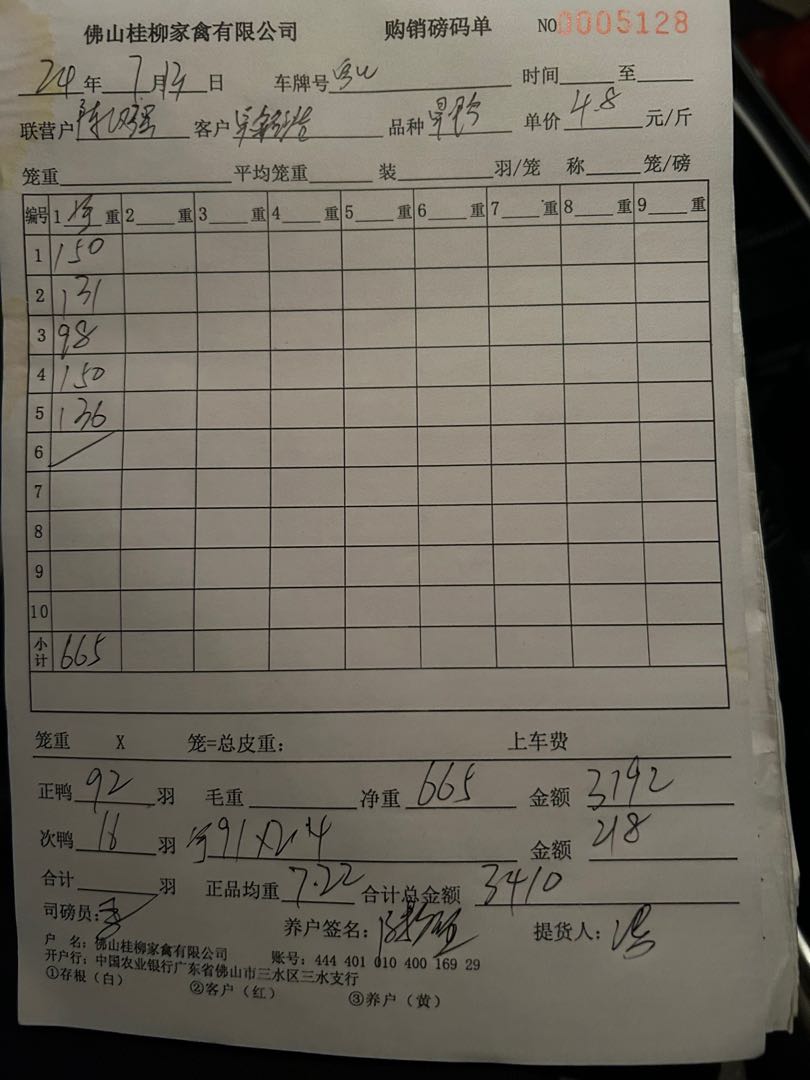 佛山桂柳家禽有限公司 购销磅码单 NO 0005128
24年7月13日 车牌号 时间 至
联营户 客户 品种 单价4.8元/斤
笼重 平均笼重 装 羽/笼 称 笼/磅
编号 1净重 2 重 3 重 4 重 5 重 6 重 7 重 8 重 9 重
1 150
2 131
3 98
4 150
5 136
6
7
8
9
10
小计 665
笼重 X 笼=总皮重: 上车费
正鸭92羽 毛重 净重665 金额3192
次鸭 羽 净91×2.4 金额218
合计 羽 正品均重7.22 合计总金额3410
司磅员: 养户签名: 提货人:
户 名:佛山桂柳家禽有限公司 账号:444 401 010 400 169 29
开户行:中国农业银行广东省佛山市三水区三水支行
①存根(白) ②客户(红) ③养户(黄)